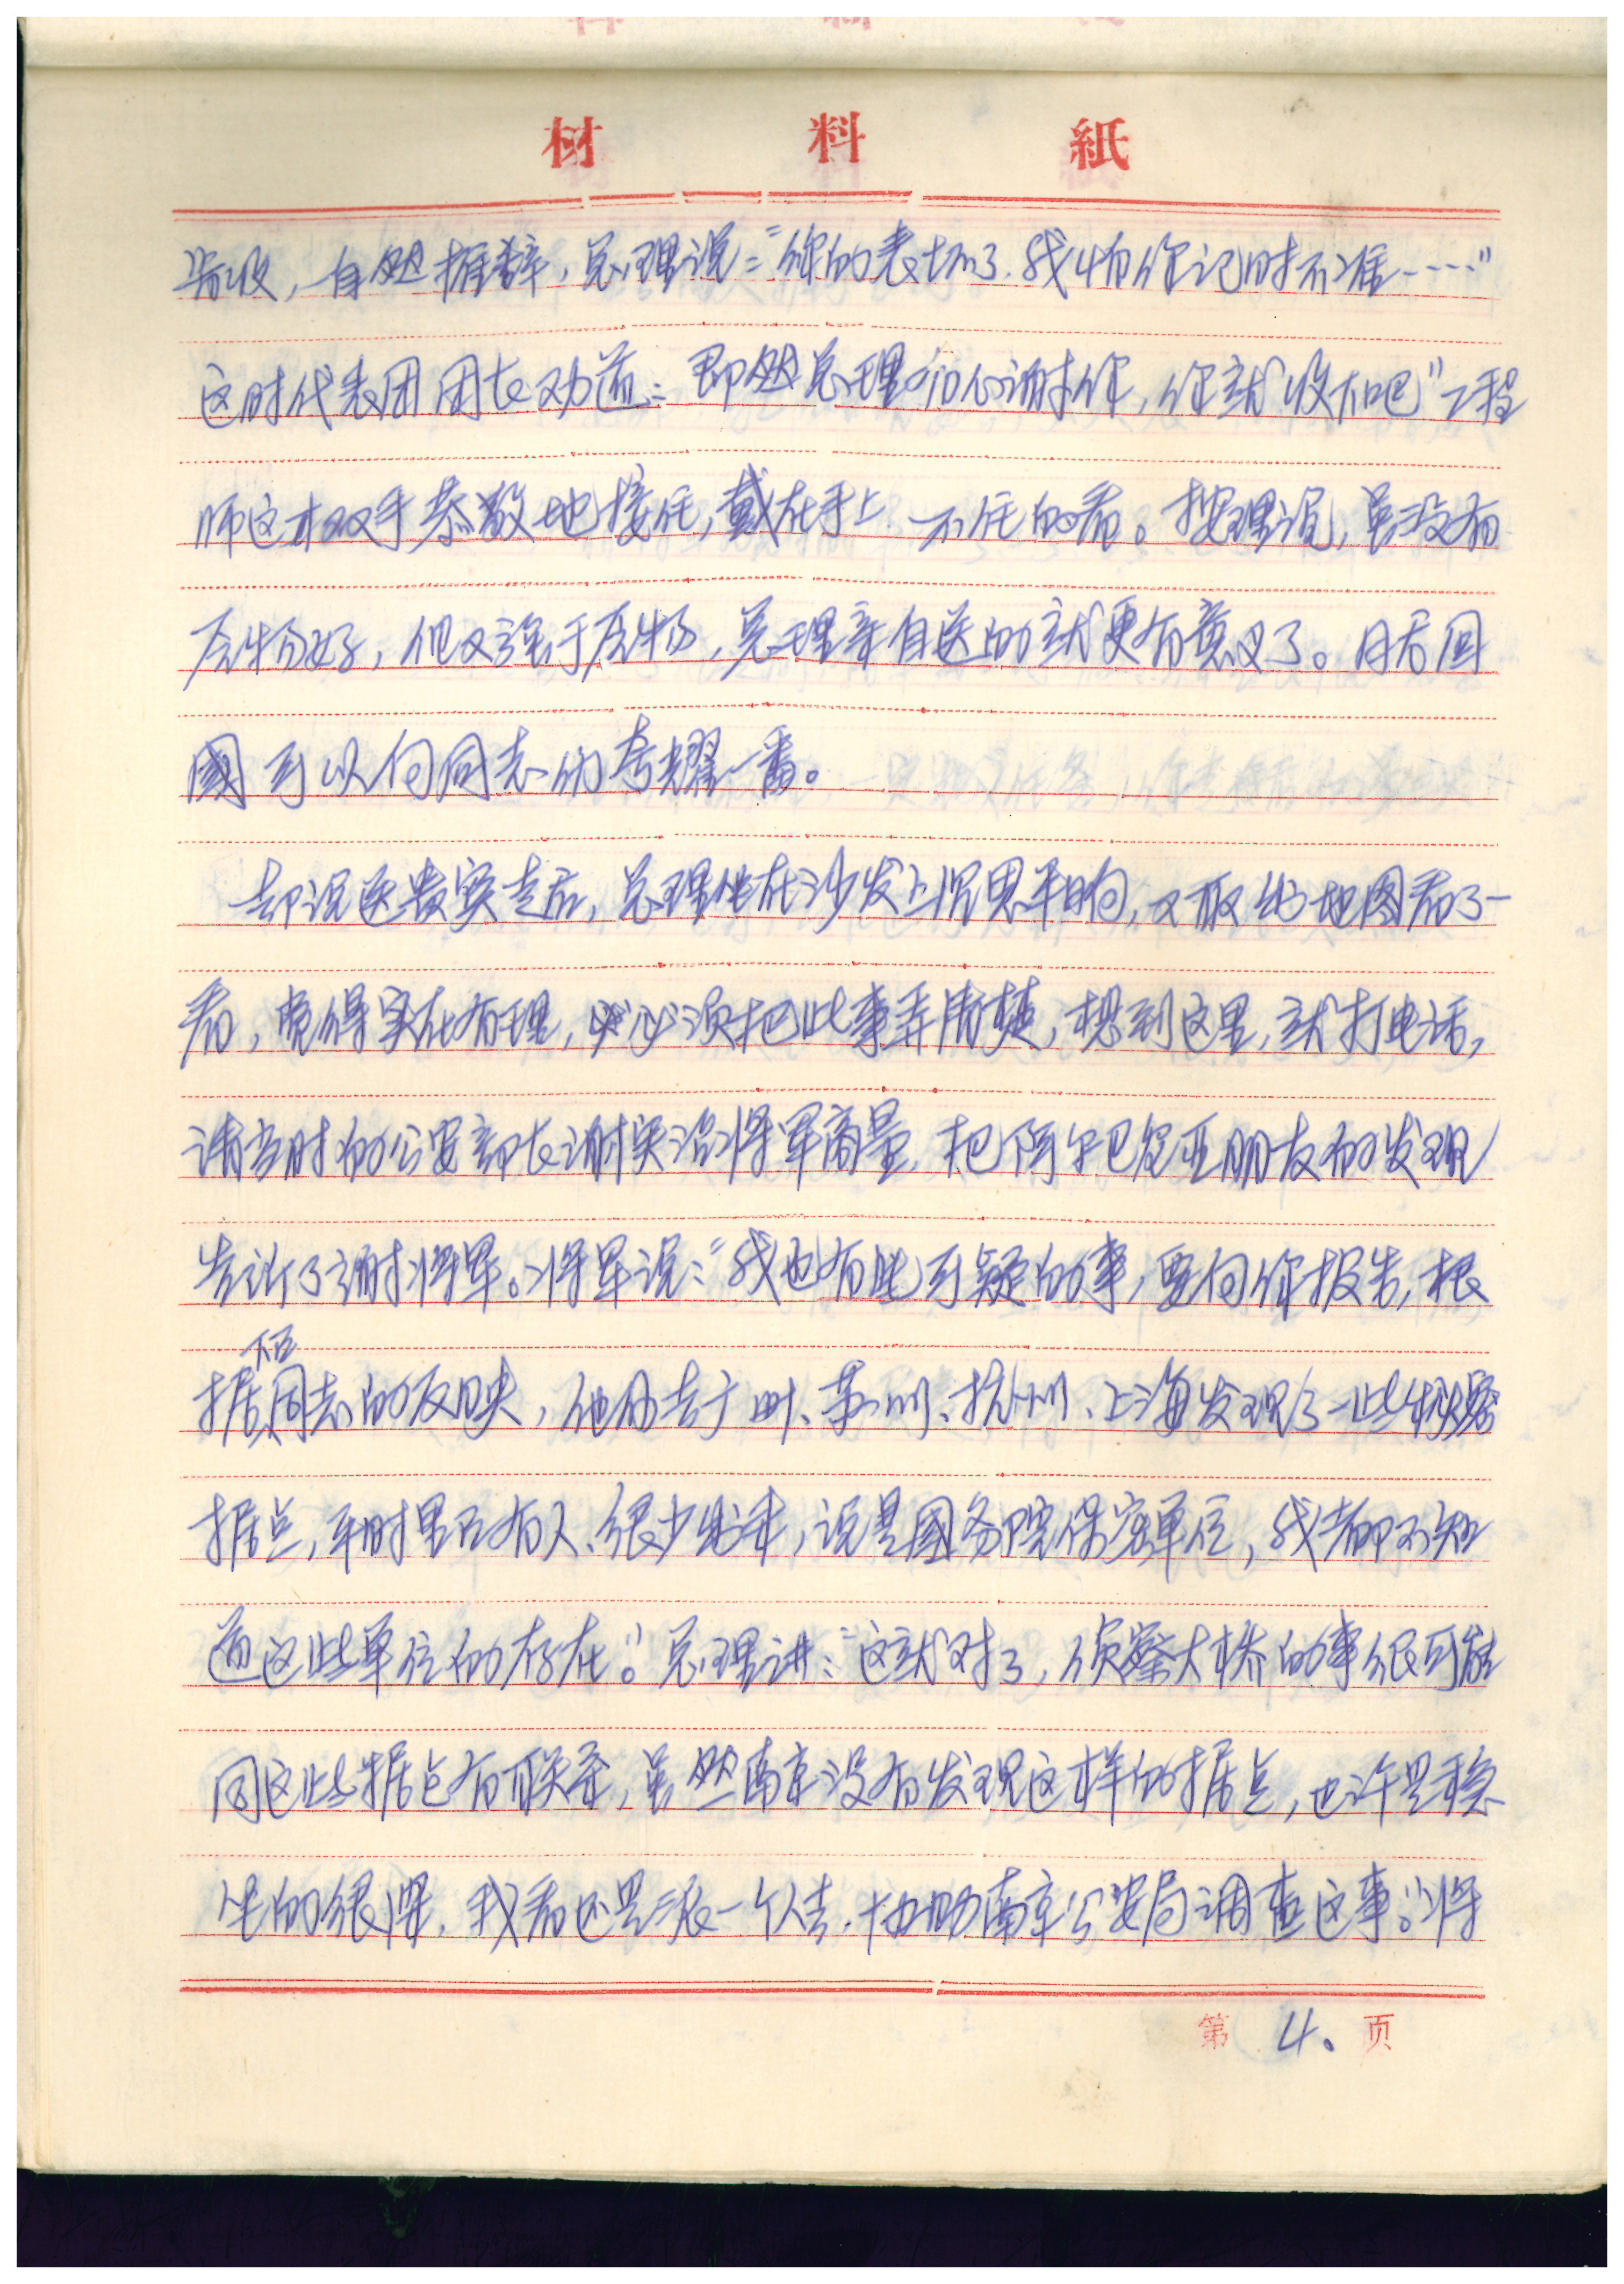 材料紙
肯收，自然推辞，总理说：“你的表坏了．我怕你记时不准……”
这时代表团团长劝道：即然总理诚心谢你，你就收下吧”工程
师这才双手恭敬地接住，戴在手上．不住的看。按理说，虽没有
原物好，但又强于原物，总理亲自送的就更有意义了。日后回
國可以向同志们夸耀一番。
却说送贵宾走后，总理坐在沙发上沉思半晌，又取出地图看了一
看，觉得实在有理，必须把此事弄清楚，想到这里，就打电话，
请当时的公安部长谢富治将军商量．把阿尔巴尼亚朋友的发现
告诉了谢将军。将军说：“我也有些可疑的事，要向你报告，根
据下面同志的反映，他们去广州、苏州、杭州、上海发现了一些秘密
据点，平时里面有人、很少出来，说是國务院保密单位，我都不知
道这些单位的存在。”总理讲：“这就对了，侦察大桥的事很可能
同这些据点有联系，虽然南京没有发现这样的据点，也许是隐
的很深．我看还是派一个人去．协助南京公安局调查这事。”将
第 4. 页